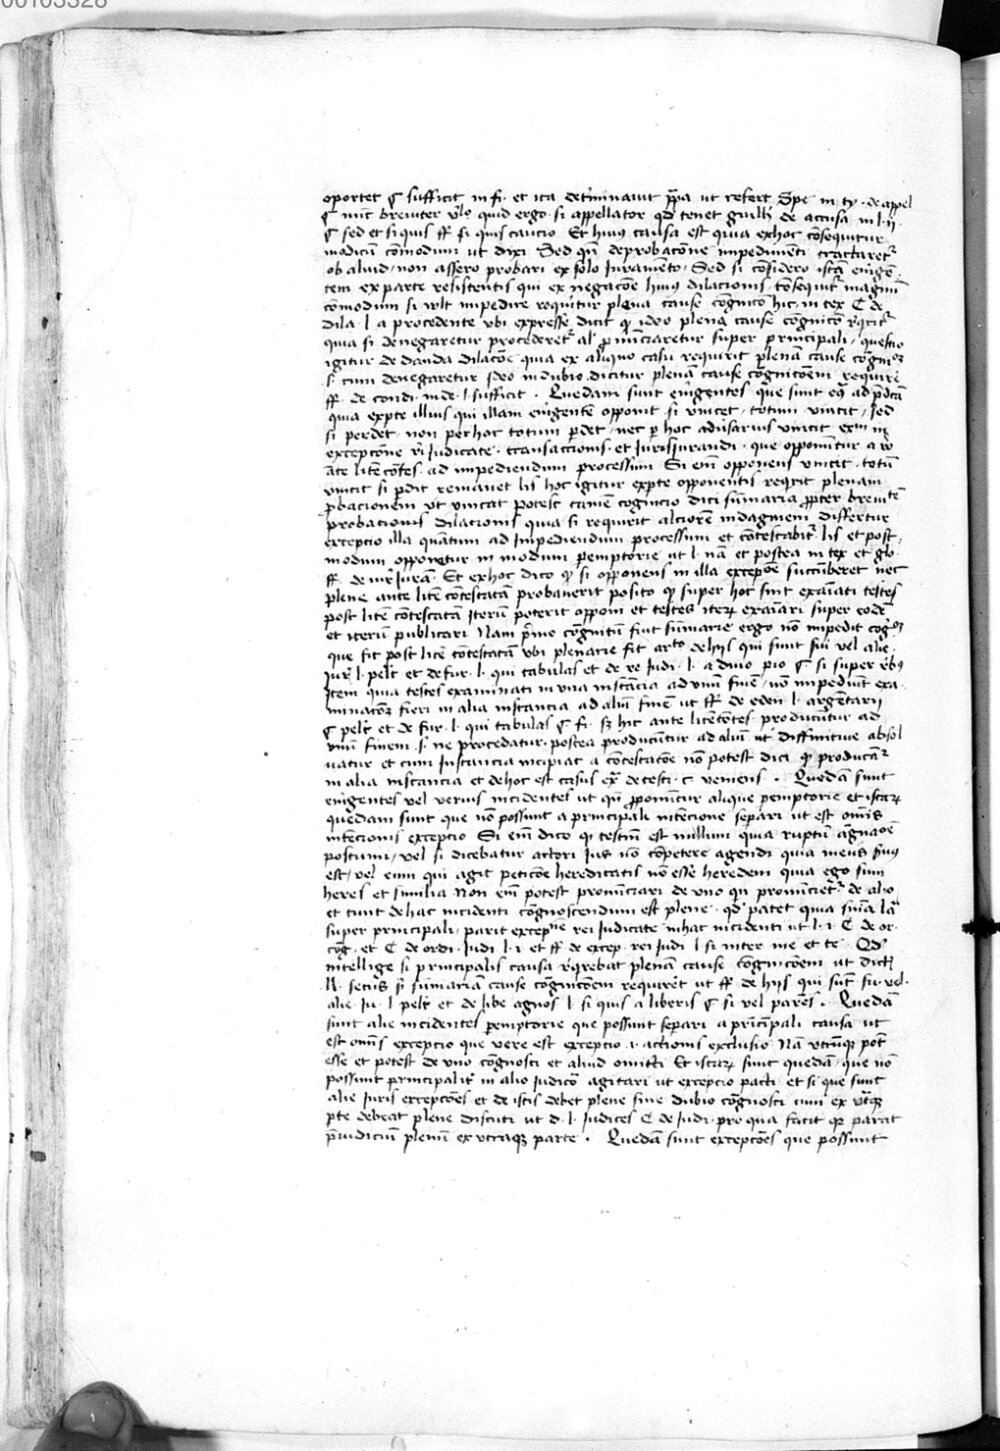 00103328
oportet ¶ sufficit in fi. et ita det̄minavit pp̄a ut refert Spe in ty. de appel
¶ nūc breviter v̄lo quid ergo si appellator qd tenet guilh̄ de accusa in l. ii.
¶ sed et si quis ff. si quis caucio Et huius causa est quia ex hoc cōsequitur
modicū cōmodum ut dixi Sed qn̄ de probacōne impedimēti tractaret᷑
ob aliud non assero probari ex solo Juramēto Sed si cōsidero istā em̄gē
tem ex parte resistentis qui ex negacōe huius dilacionis cōsequit᷑ magnū
cōmodum si vult impedire requiritur plena cause cōgnicō hic in tex C de
dila. l. a procedente ubi expresse dicit ꝙ ideo plena cause cōgnicō rq̄rit᷑
quia si denegaretur procederet᷑ al̄ p̄nūciaretur super principali questio
igitur de danda dilacōe quia ex aliquo casu requirit plenā cause cōgnicōꝫ
s. cum denegaretur ideo in dubio dicitur plenā cause cōgnicōem requirere
ff. de condi. inde. l. sufficit . Quedam sunt em̄gentes que sunt eq̄ ad p̄dc̄a
quia ex pte illius qui illam em̄gente opponit si vincet totum vincit sed
si perdet non per hoc totum p̄det nec p hoc adūsarius vincit exm̄ in
excepcōne rei Judicate transaccionis et Jurisiurandi que opponūtur a ro
āte litē cōtes. ad impediendum processum Si em̄ opponens vincit totū
vincit si p̄dit remanet lis hoc igitur ex pte opponentis reqrit plenam
p̄bacionem ut vincat potest tamē cognicio dici sūmaria ꝓpter brevitē
probationis dilacionis quia si requirit alciorē indaginem differtur
excepcio illa quātum ad impediendum processum et cōtestabit᷑ lis et post
modum opponetur in modum pemptorie ut l. nā et postea in tex et glo.
ff. de iur̄iurā. Et ex hoc dico ꝙ si opponens in illa excepcōe succūberet nec
plene ante litē cōtestatā probaverit posito ꝙ super hoc sint exaīati testes
post litē cōtestatā iterū poterit opponi et testes iterꝫ exaīari super eodē
et iterū publicari Nam p̄me cōgnitū fuit sūmarie ergo nō impedit coḡcoꝫ
que fit post litē cōtestatā ubi plenarie fit art̄o de hijs qui sunt sui vel alie.
Jur̄ l. pen̄lt et de fur. l. qui tabulas et de re Judi. l. a divo pio ¶ si super r̄bus
Item quia testes examinati in una instācia ad unū finē nō impediūt exa.
minacōꝫ fieri in alia instancia ad aliū finē ut ff. de eden. l. argentarii
¶ pen̄lt et de fur. l. qui tabulas ¶ fi. sꝫ hic ante litē cōtes. producūtur ad
unū finem s. ne procedatur postea producūtur ad aliū ut diffinitive absol
vatur et cum instancia incipiat a cōtestatōe nō potest dici ꝙ producāt᷑
in alia instancia et de hoc est casus ex̄ de testi. c. veniens . Quedā sunt
em̄gentes vel verius incidentes ut qn̄ ꝓponūtur alique pemptorie et istarꝫ
quedam sunt que nō possunt a principali intēcione separi ut est omīs
intēcionis excepcio Si em̄ dico ꝙ testm̄ est nullum quia ruptū agnacōē
postumi vel si dicebatur actori Jus nō cōpetere agendi quia meus s̄vus
est vel eum qui agit peticōe hereditatis nō esse heredem quia ego sum
heres et similia Non em̄ potest pronūciari de uno qn̄ pronūciet᷑ de alio
et tunc de hac incidenti cōgnoscendum est plene qd patet quia s̄nīa lā
super principali parit excepc̄nē rei Judicate in hac incidenti ut l. i. C de or.
coḡ. et C de ordi. Judi. l. i. et ff. de excep. rei Judi l. si inter me et te Qd
intellige si principalis causa rq̄rebat plenam cause cōgnicōem ut dictū
N. secus si sūmariam cause cōgnicōem requirēt ut ff. de hijs qui sūt sui vel
alie. Ju. l. pen̄lt et de libe agnos l. si quis a liberis ¶ si vel parēs . Quedā
sunt alie incidentes pemptorie que possunt separi a prīcipali causa ut
est omīs excepcio que vere est excepcio i. actionis exclusio Nā utrūꝙ pōt
esse et potest de uno cōgnosci et aliud omitti Et istarꝫ sunt quedā que nō
possunt principalit̄ in alio Judicō agitari ut excepcio pacti et si que sunt
alie Juris excepcōes et de istis debet plene sine dubio cōgnosci cum ex utꝗ
pte debeat plene discuti ut d. l. Judices C de Judi. pro qua facit ꝙ parat
p̄iudiciū plenū ex utraꝙ parte . Quedā sunt excepcōes que possunt